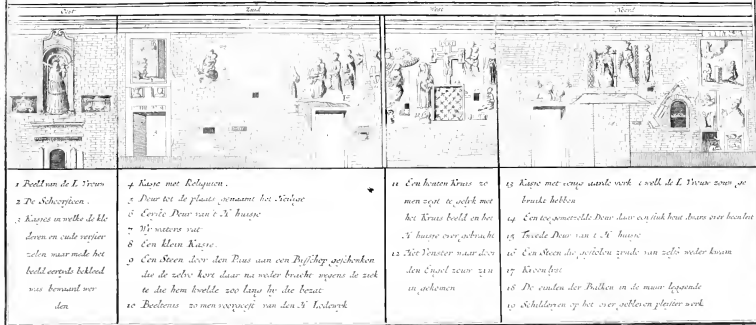 Oost
Zuid
West
Noord
1 Beeld van de L Vrouw
2 De Schoorsteen.
3 Kasses in welke de kle
deren en oude versier
zelen waar mede het
beeld eertyds bekleed
was bewaard wer
den
4 Kasse met Reliquien.
5 Deur tot de plaats genaamt het Heilige
6 Eerste Deur van't H huisje
7 Wy waters vat
8 Een klein Kasse.
9 Een Steen door den Paus aan een Bisschop geschonken
die de zelve kort daar na weder bracht wegens de ziek
te die hem kwelde zoo lang hy die bezat
10 Beeltenis zo men voorgeeft van den H Lodewyk
11 Een houten Kruis zo
men zegt te gelyk met
het Kruis beeld en het
H huisje over gebracht
12 Het Venster waar door
den Engel zouw zyn
in gekomen
13 Kasse met eenig aarde werk t welk de L Vrouw zouw ge
bruikt hebben
14 Een toe gemetzelde Deur daar een stuk hout dwars over heen leit
15 Tweede Deur van t H huisje
16 Een Steen die gestolen zynde van zelfs weder kwam
17
18 De einden der Balken in de muur leggende
19 Schilderyen op het over gebleven pleister werk